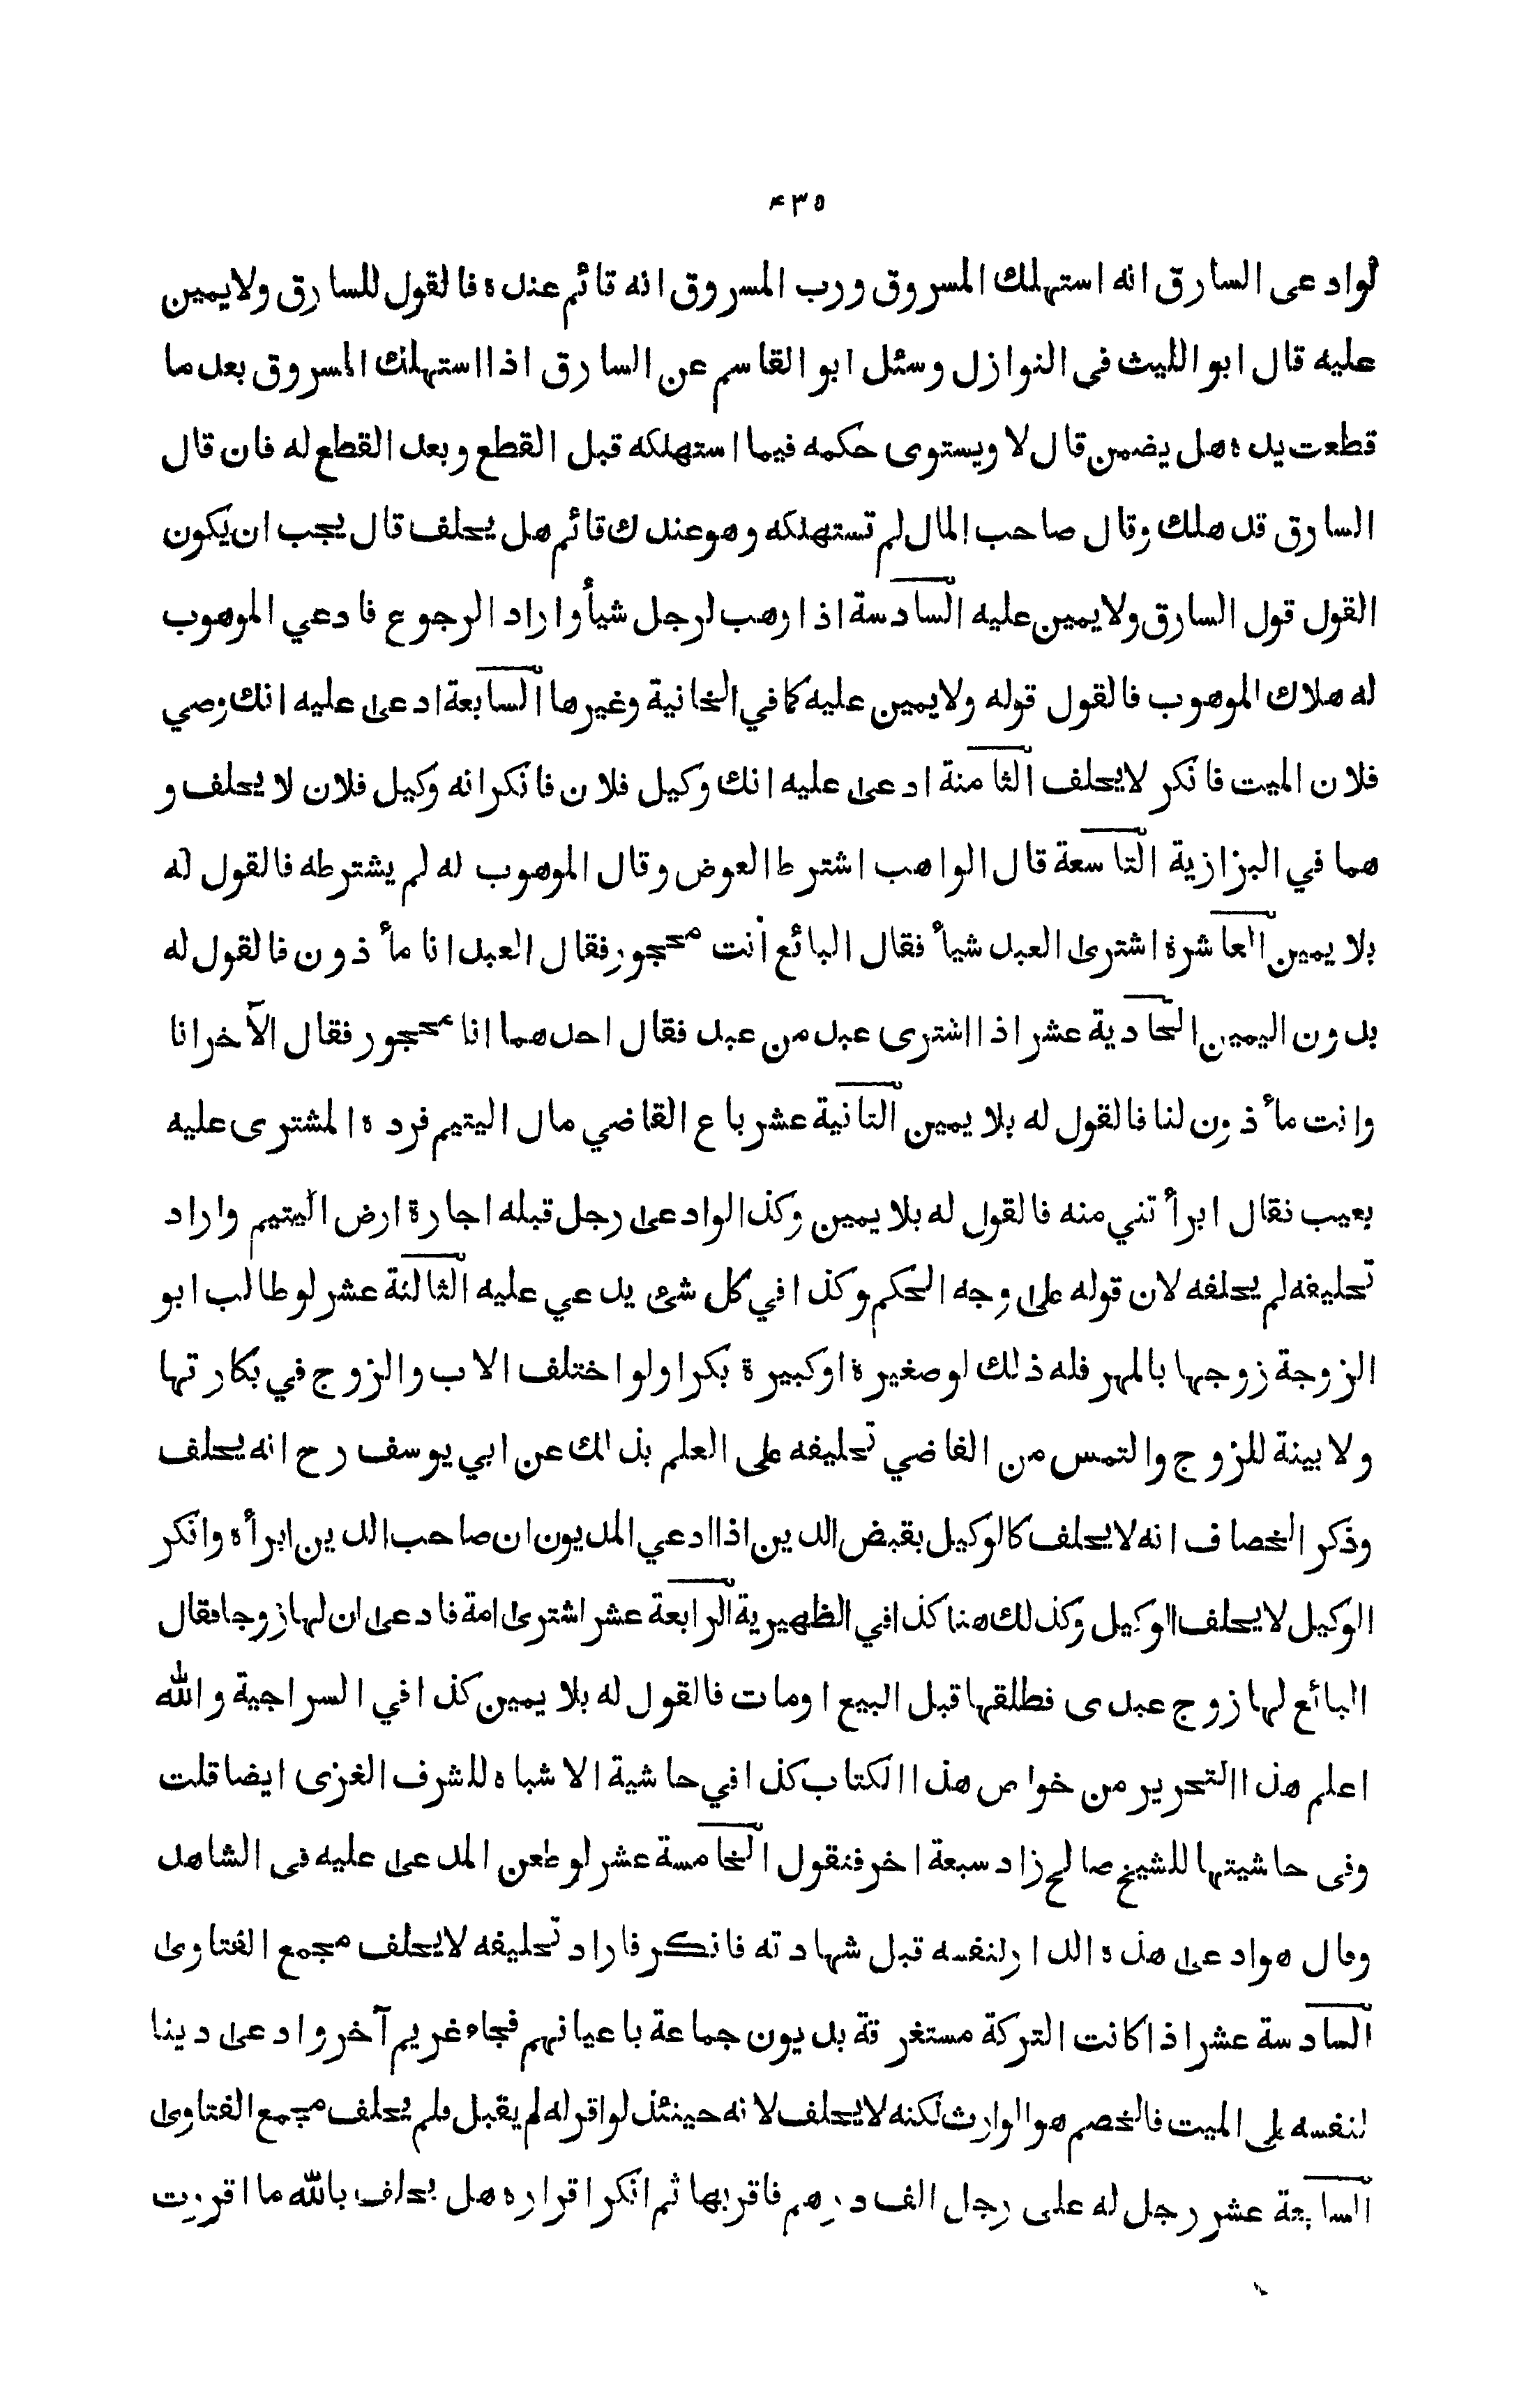 ۴۳۵
لوادعى السارق انه استهلك المسروق ورب المسروق انه قائم عنده فالقول للسارق ولايمين
عليه قال ابو الليث فى النوازل وسئل ابو القاسم عن السارق اذا استهلك المسروق بعد ما
قطعت يده هل يضمن قال لا ويستوى حكمه فيما استهلكه قبل القطع وبعد القطع له فان قال
السارق قد هلك وقال صاحب المال لم تستهلكه وهو عندك قائم هل يحلف قال يجب ان يكون
القول قول السارق ولايمين عليه السادسة اذا وهب لرجل شيأ واراد الرجوع فادعي الموهوب
له هلاك الموهوب فالقول قوله ولايمين عليه كما في الخانية وغيرها السابعة ادعى عليه انك وصي
فلان الميت فانكر لايحلف الثامنة ادعى عليه انك وكيل فلان فانكر انه وكيل فلان لا يحلف و
هما في البزازية التاسعة قال الواهب اشترط العوض وقال الموهوب له لم يشترطه فالقول له
بلا يمين العاشرة اشترى العبد شيأ فقال البائع أنت محجور فقال العبد انا مأذون فالقول له
بدون اليمين الحادية عشر اذا اشترى عبد من عبد فقال احدهما انا محجور فقال الآخر انا
وانت مأذون لنا فالقول له بلا يمين الثانية عشر باع القاضي مال اليتيم فرده المشترى عليه
بعيب فقال ابرأتني منه فالقول له بلا يمين وكذا لو ادعى رجل قبله اجارة ارض اليتيم واراد
تحليفه لم يحلفه لان قوله على وجه الحكم وكذا في كل شئ يدعي عليه الثالثة عشر لو طالب ابو
الزوجة زوجها بالمهر فله ذلك لو صغيرة او كبيرة بكرا ولو اختلف الاب والزوج في بكارتها
ولا بينة للزوج والتمس من القاضي تحليفه على العلم بذلك عن ابي يوسف رح انه يحلف
وذكر الخصاف انه لا يحلف كالوكيل بقبض الدين اذا ادعي المديون ان صاحب الدين ابرأه وانكر
الوكيل لا يحلف الوكيل وكذلك هنا كذا في الظهيرية الرابعة عشر اشترى امة فادعى ان لها زوجا فقال
البائع لها زوج عبدى فطلقها قبل البيع او مات فالقول له بلا يمين كذا في السراجية والله
اعلم هذا التحرير من خواص هذا الكتاب كذا في حاشية الاشباه للشرف الغزى ايضا قلت
وفى حاشيتها للشيخ صالح زاد سبعة اخر فنقول الخامسة عشر لو طعن المدعى عليه فى الشاهد
وقال هو ادعى هذه الدار لنفسه قبل شهادته فانكر فاراد تحليفه لايحلف مجمع الفتاوى
السادسة عشر اذا كانت التركة مستغرقة بديون جماعة باعيانهم فجاء غريم آخر وادعى دينا
لنفسه على الميت فالخصم هو الوارث لكنه لا يحلف لانه حينئذ لو اقر له لم يقبل فلم يحلف مجمع الفتاوى
السابعة عشر رجل له على رجل الف درهم فاقر بها ثم انكر اقراره هل يحلف بالله ما اقررت